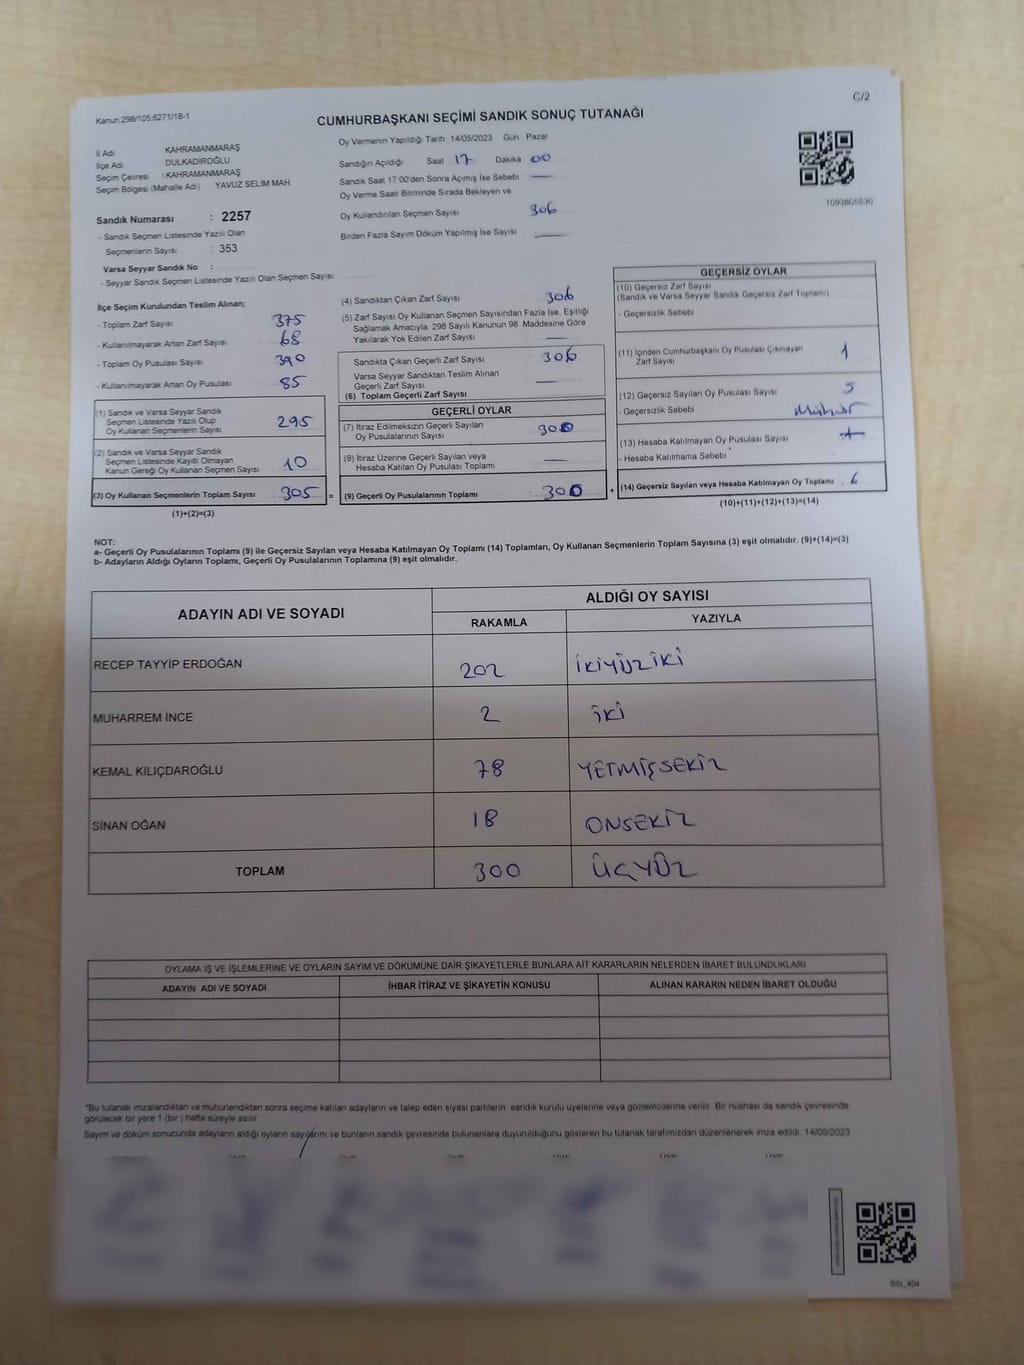 C/2
Kanun:298/105;6271/18-1
CUMHURBAŞKANI SEÇİMİ SANDIK SONUÇ TUTANAĞI
İl Adı KAHRAMANMARAŞ
İlçe Adı DULKADİROĞLU
Seçim Çevresi : KAHRAMANMARAŞ
Seçim Bölgesi (Mahalle Adı) YAVUZ SELİM MAH.
Sandık Numarası : 2257
- Sandık Seçmen Listesinde Yazılı Olan
Seçmenlerin Sayısı : 353
Varsa Seyyar Sandık No :
- Seyyar Sandık Seçmen Listesinde Yazılı Olan Seçmen Sayısı:
Oy Vermenin Yapıldığı Tarih 14/05/2023 Gün Pazar
Sandığın Açıldığı Saat 17 Dakika 00
Sandık Saat 17:00'den Sonra Açımış İse Sebebi —
Oy Verme Saati Bitiminde Sırada Bekleyen ve
Oy Kullandırılan Seçmen Sayısı 306
Birden Fazla Sayım Döküm Yapılmış İse Sayısı —
1093805530
İlçe Seçim Kurulundan Teslim Alınan;
- Toplam Zarf Sayısı 375
- Kullanılmayarak Artan Zarf Sayısı 68
- Toplam Oy Pusulası Sayısı 390
- Kullanılmayarak Artan Oy Pusulası 85
(1) Sandık ve Varsa Seyyar Sandık
Seçmen Listesinde Yazılı Olup
Oy Kullanan Seçmenlerin Sayısı 295
(2) Sandık ve Varsa Seyyar Sandık
Seçmen Listesinde Kayıtlı Olmayan
Kanun Gereği Oy Kullanan Seçmen Sayısı 10
(3) Oy Kullanan Seçmenlerin Toplam Sayısı 305 =
(1)+(2)=(3)
(4) Sandıktan Çıkan Zarf Sayısı 306
(5) Zarf Sayısı Oy Kullanan Seçmen Sayısından Fazla İse, Eşitliği
Sağlamak Amacıyla, 298 Sayılı Kanunun 98. Maddesine Göre
Yakılarak Yok Edilen Zarf Sayısı —
Sandıkta Çıkan Geçerli Zarf Sayısı 306
Varsa Seyyar Sandıktan Teslim Alınan
Geçerli Zarf Sayısı —
(6) Toplam Geçerli Zarf Sayısı
GEÇERLİ OYLAR
(7) İtiraz Edilmeksizin Geçerli Sayılan
Oy Pusulalarının Sayısı 300
(8) İtiraz Üzerine Geçerli Sayılan veya
Hesaba Katılan Oy Pusulası Toplamı —
(9) Geçerli Oy Pusulalarının Toplamı 300 +
GEÇERSİZ OYLAR
(10) Geçersiz Zarf Sayısı
(Sandık ve Varsa Seyyar Sandık Geçersiz Zarf Toplamı)
- Geçersizlik Sebebi
(11) İçinden Cumhurbaşkanı Oy Pusulası Çıkmayan
Zarf Sayısı 1
(12) Geçersiz Sayılan Oy Pusulası Sayısı 5
- Geçersizlik Sebebi Mühür
(13) Hesaba Katılmayan Oy Pusulası Sayısı
- Hesaba Katılmama Sebebi
(14) Geçersiz Sayılan veya Hesaba Katılmayan Oy Toplamı 6
(10)+(11)+(12)+(13)=(14)
NOT:
a- Geçerli Oy Pusulalarının Toplamı (9) ile Geçersiz Sayılan veya Hesaba Katılmayan Oy Toplamı (14) Toplamları, Oy Kullanan Seçmenlerin Toplam Sayısına (3) eşit olmalıdır. (9)+(14)=(3)
b- Adayların Aldığı Oyların Toplamı, Geçerli Oy Pusulalarının Toplamına (9) eşit olmalıdır.
ADAYIN ADI VE SOYADI ALDIĞI OY SAYISI
RAKAMLA YAZIYLA
RECEP TAYYİP ERDOĞAN 202 İKİYÜZİKİ
MUHARREM İNCE 2 İKİ
KEMAL KILIÇDAROĞLU 78 YETMİŞSEKİZ
SİNAN OĞAN 18 ONSEKİZ
TOPLAM 300 ÜÇYÜZ
OYLAMA İŞ VE İŞLEMLERİNE VE OYLARIN SAYIM VE DÖKÜMÜNE DAİR ŞİKAYETLERLE BUNLARA AİT KARARLARIN NELERDEN İBARET BULUNDUKLARI
ADAYIN ADI VE SOYADI İHBAR İTİRAZ VE ŞİKAYETİN KONUSU ALINAN KARARIN NEDEN İBARET OLDUĞU
"Bu tutanak imzalandıktan ve mühürlendikten sonra seçime katılan adayların ve talep eden siyasi partilerin sandık kurulu üyelerine veya gözlemcilerine verilir. Bir nüshası da sandık çevresinde
görülecek bir yere 1 (bir ) hafta süreyle asılır.
Sayım ve döküm sonucunda adayların aldığı oyların sayılarını ve bunların sandık çevresinde bulunanlara duyurulduğunu gösteren bu tutanak tarafımızdan düzenlenerek imza edildi. 14/05/2023
BSI_404